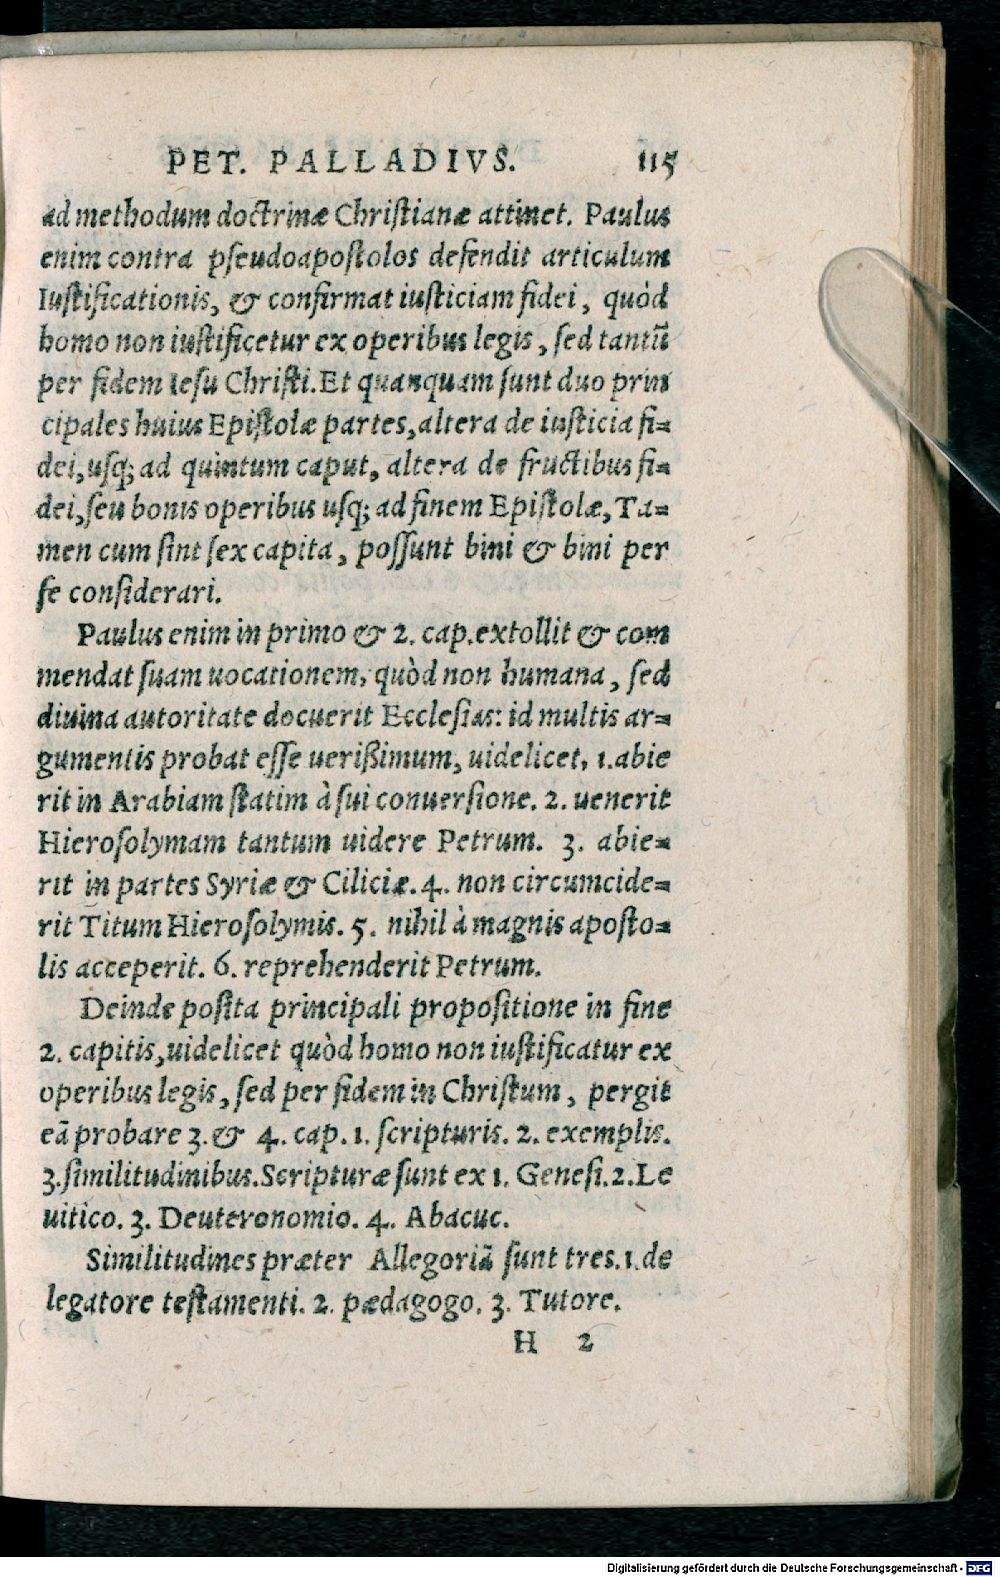 PET. PALLADIVS. 115
ad methodum doctrinæ Christianæ attinet. Paulus
enim contra pseudoapostolos defendit articulum
Iustificationis, & confirmat iusticiam fidei, quòd
homo non iustificetur ex operibus legis, sed tantũ
per fidem Iesu Christi. Et quanquam sunt duo prin
cipales huius Epistolæ partes, altera de iusticia fi=
dei, usq; ad quintum caput, altera de fructibus fi=
dei, seu bonis operibus usq; ad finem Epistolæ, Ta=
men cum sint sex capita, possunt bini & bini per
se considerari.
Paulus enim in primo & 2. cap. extollit & com
mendat suam uocationem, quòd non humana, sed
diuina autoritate docuerit Ecclesias: id multis ar=
gumentis probat esse uerißimum, uidelicet, 1. abie
rit in Arabiam statim à sui conuersione. 2. uenerit
Hierosolymam tantum uidere Petrum. 3. abie=
rit in partes Syriæ & Ciliciæ. 4. non circumcide=
rit Titum Hierosolymis. 5. nihil à magnis aposto=
lis acceperit. 6. reprehenderit Petrum.
Deinde posita principali propositione in fine
2. capitis, uidelicet quòd homo non iustificatur ex
operibus legis, sed per fidem in Christum, pergit
eã probare 3. & 4. cap. 1. scripturis. 2. exemplis.
3. similitudinibus. Scripturæ sunt ex 1. Genesi. 2. Le
uitico. 3. Deuteronomio. 4. Abacuc.
Similitudines præter Allegoriã sunt tres. 1. de
legatore testamenti. 2. pædagogo. 3. Tutore.
H 2
Digitalisierung gefördert durch die Deutsche Forschungsgemeinschaft - DFG